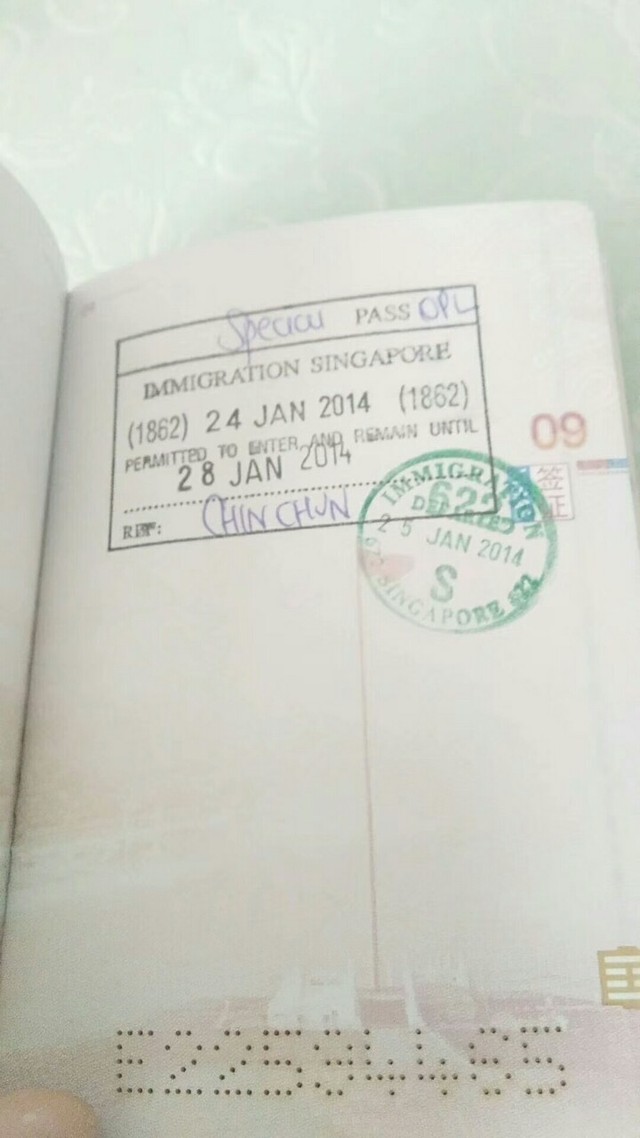 Special PASS OPL
IMMIGRATION SINGAPORE
(1862) 24 JAN 2014 (1862)
PERMITTED TO ENTER AND REMAIN UNTIL
28 JAN 2014
REF: CHIN CHUN
09
签证
IMMIGRATION
622
DEPARTED
25 JAN 2014
S
622 SINGAPORE 622